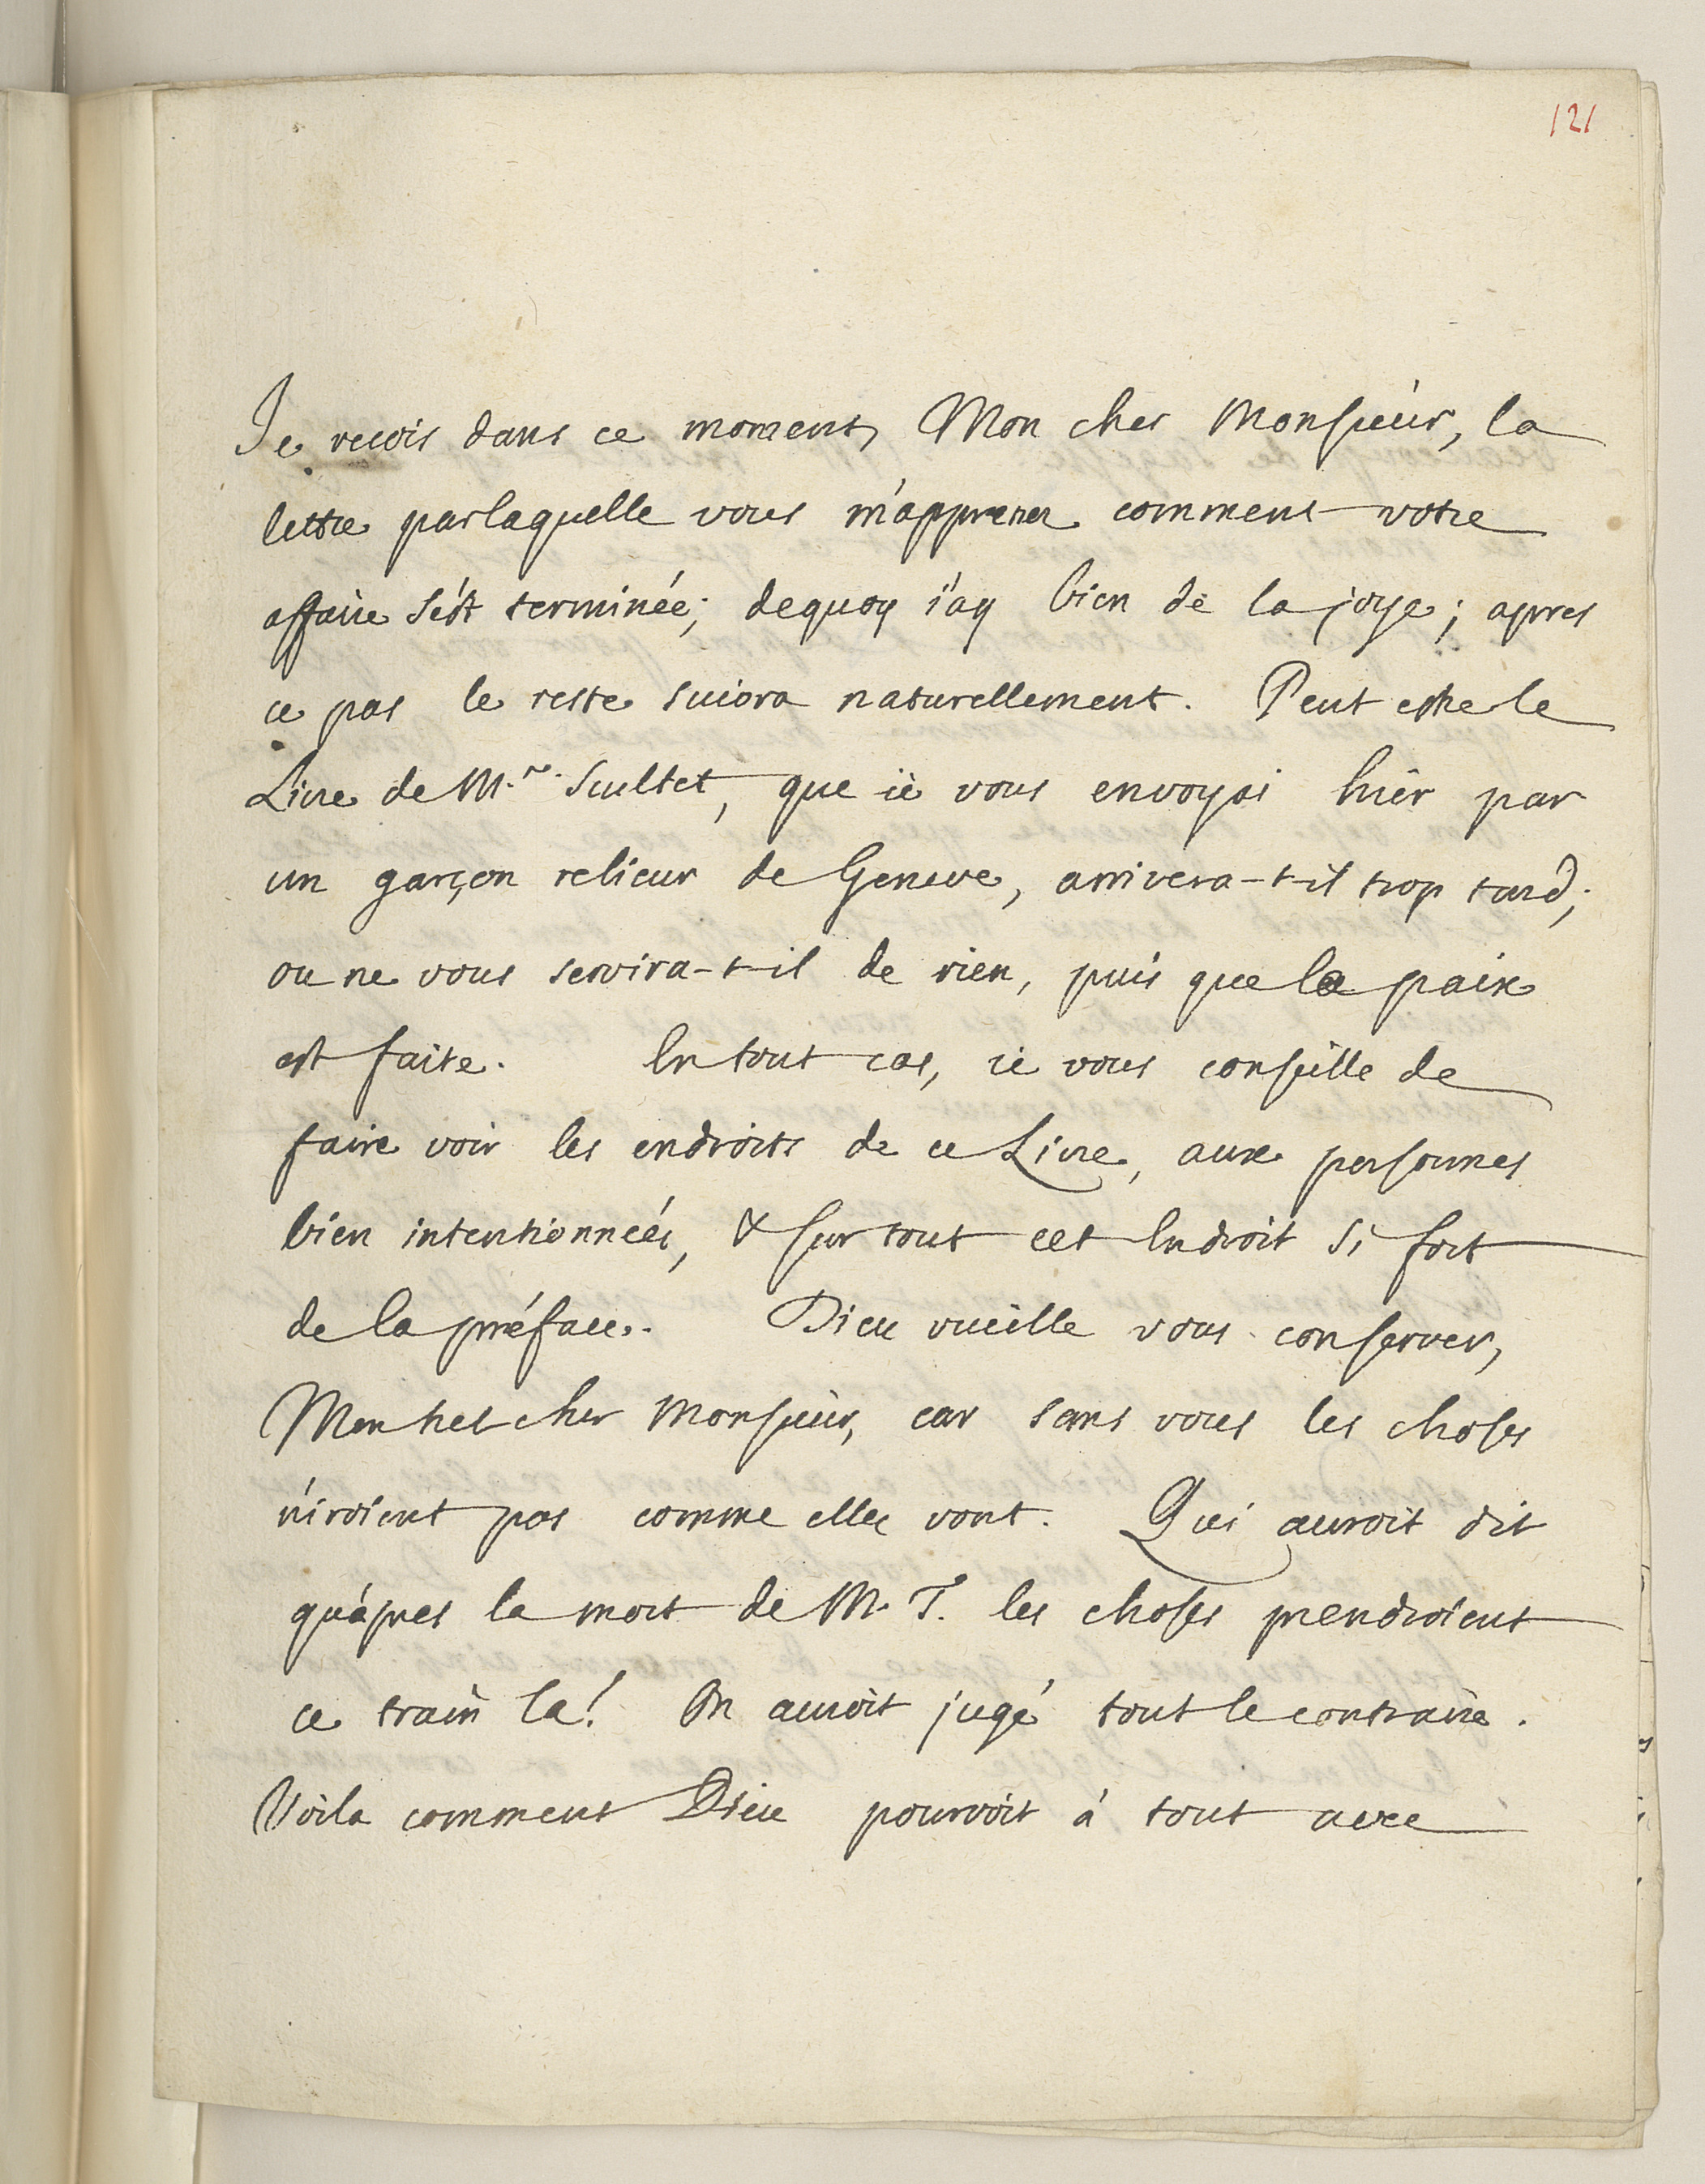 121
Je reçois dans ce moment, Mon cher Monsieur, la
lettre parlaquelle vous m'apprenez comment votre
affaire s'est terminée; dequoy i'ay bien de la joye; apres
ce pas le reste suivra naturellement. Peut estre le
Livre de M.r Scultet, que ie vous envoyai hier par
un garçon relieur de Geneve, arrivera-t-il trop tard;
ou ne vous servira-t-il de rien, puis que la paix
est faite. En tout cas, ie vous conseille de
faire voir les endroits de ce Livre, aux personnes
bien intentionnées, & sur tout cet Endroit si fort
de la préface. Dieu vueille vous conserver,
Mon tres cher Monsieur, car sans vous les choses
n'iroient pas comme elles vont. Qui auroit dit
qu'apres la mort de M. T. les choses prendroient
ce train la! On auroit jugé tout le contraire.
Voila comment Dieu pourvoit à tout avec